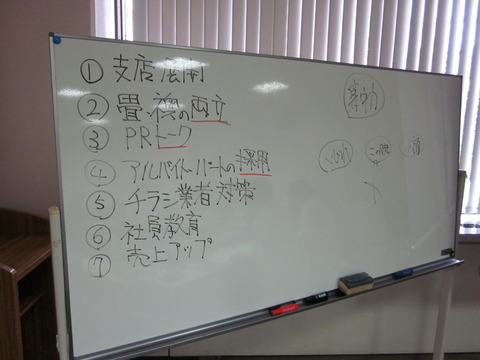 ① 支店展開
② 畳・襖の両立
③ PRトーク
④ アルバイト・パートの採用
⑤ チラシ業者対策
⑥ 社員教育
⑦ 売上アップ